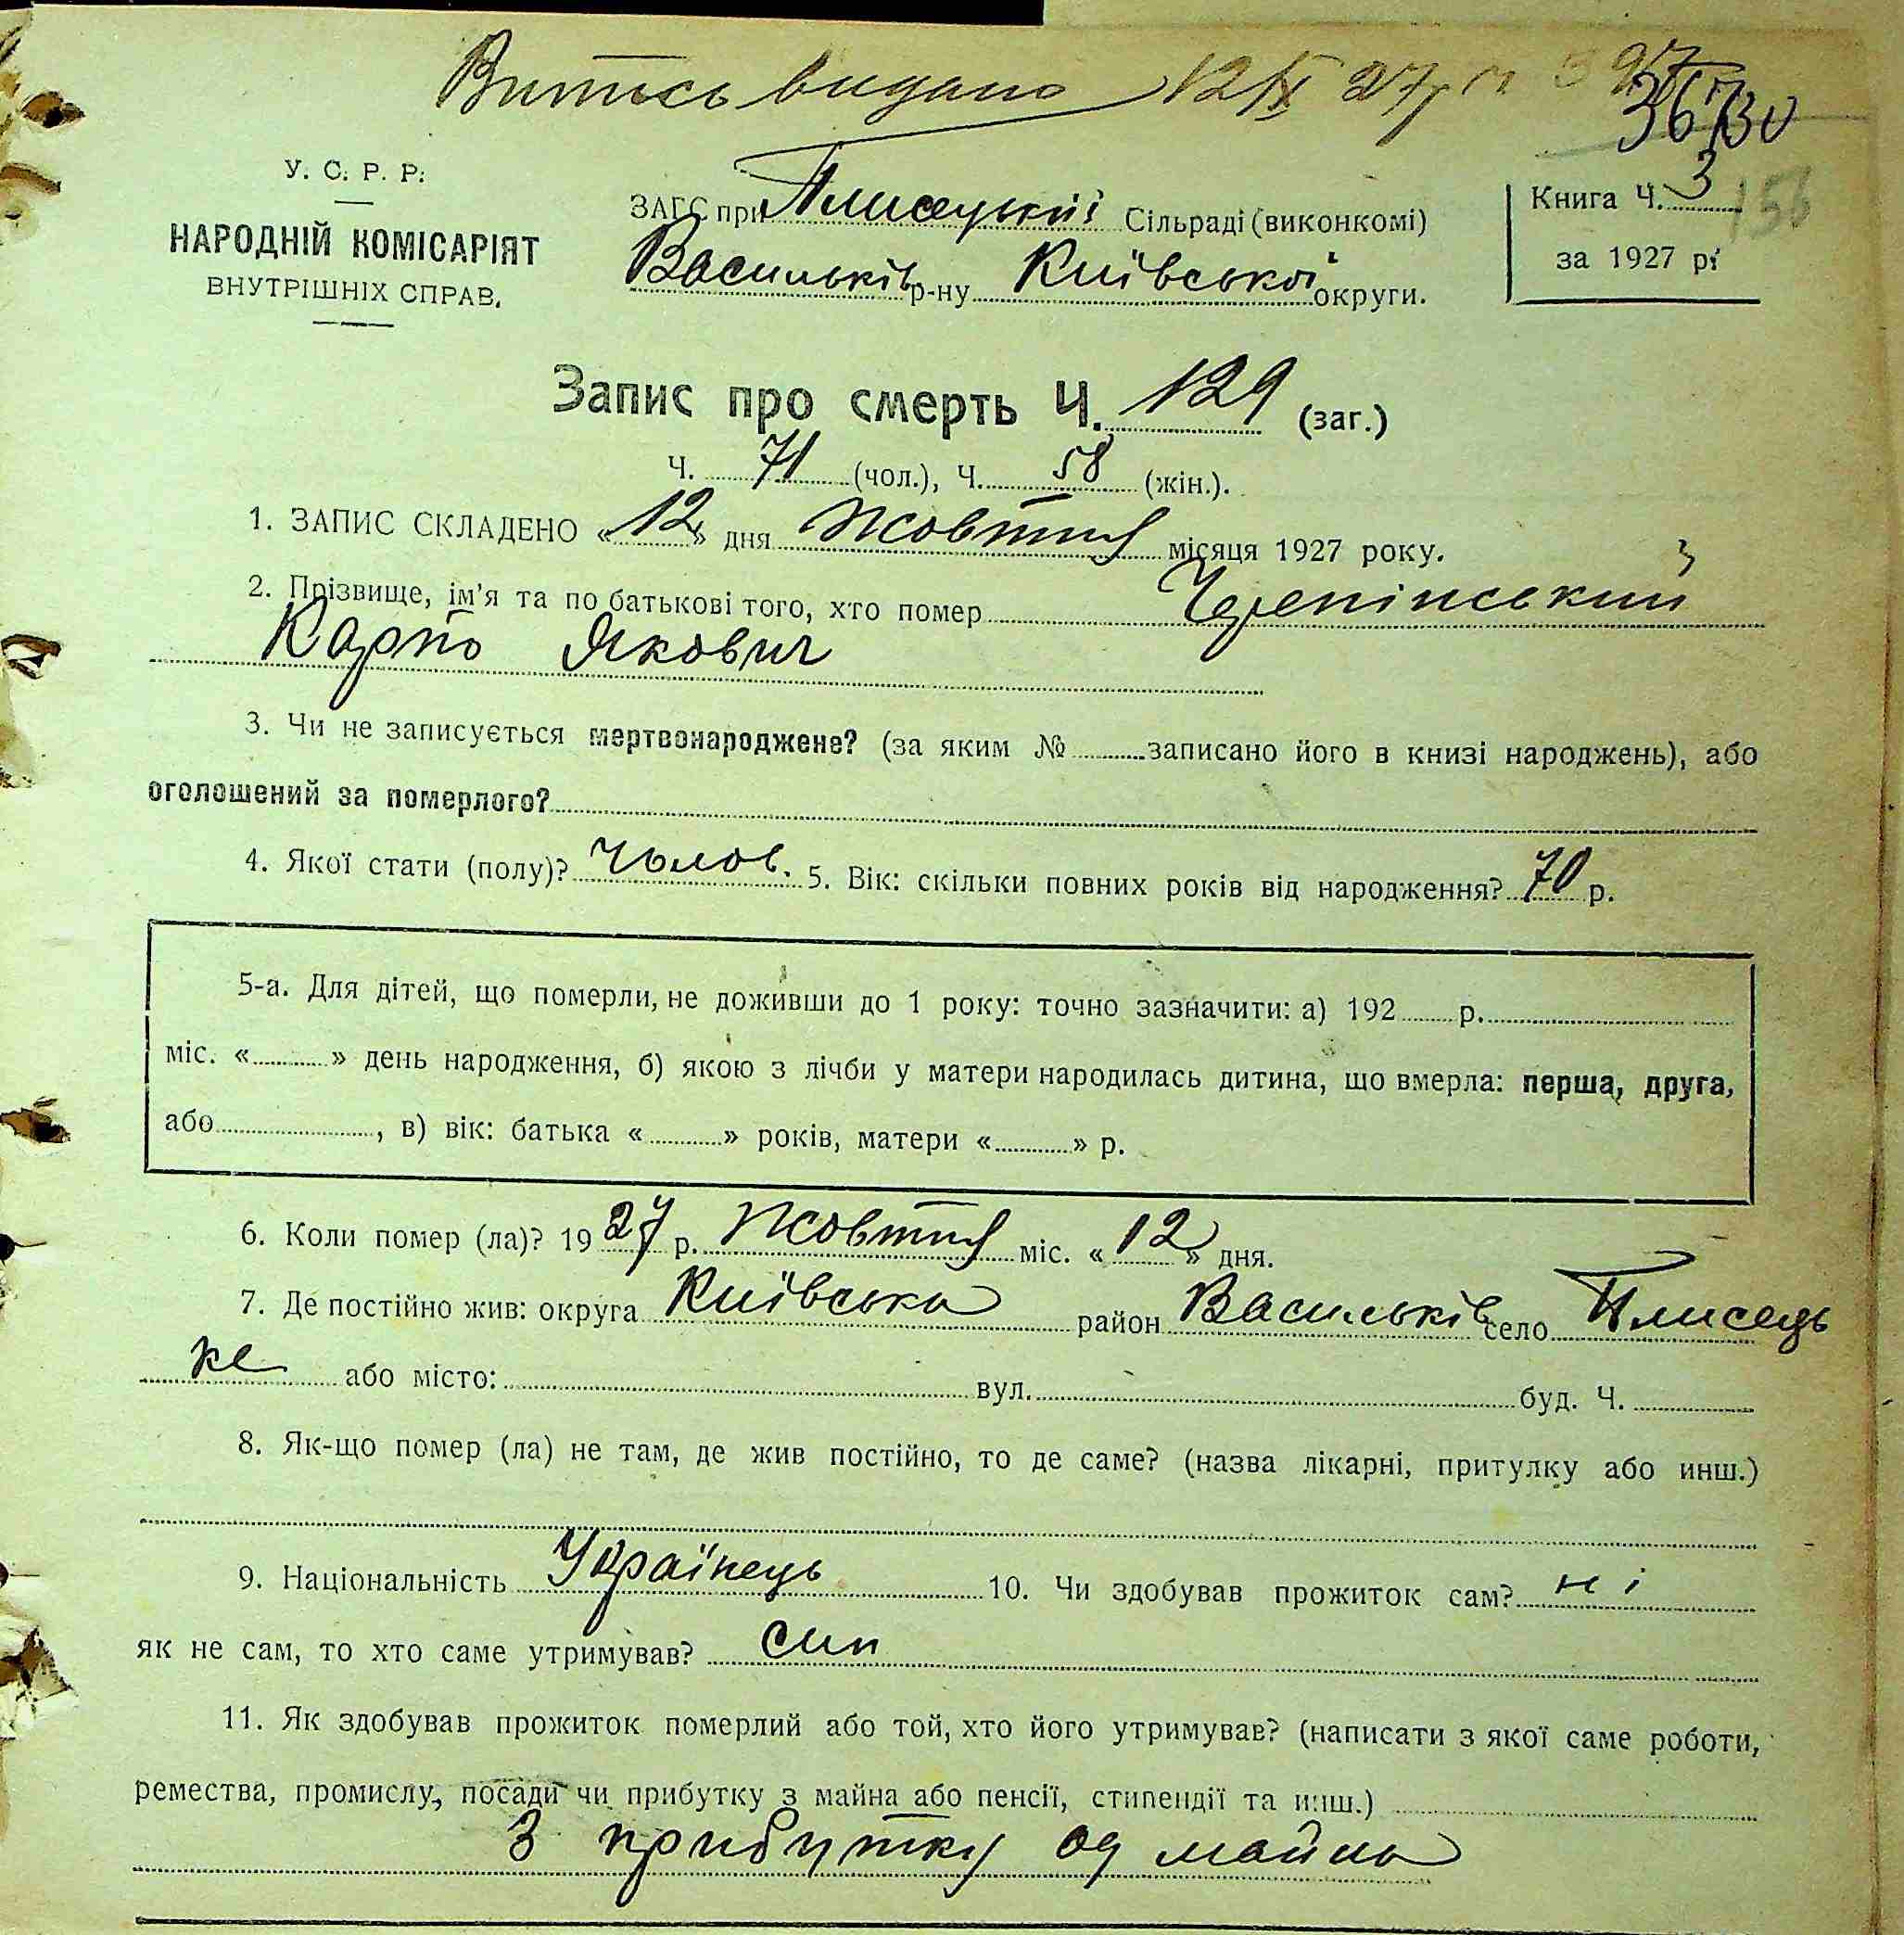 Витись видано 12/IX 27р
36730
У. С. Р. Р.
НАРОДНІЙ КОМІСАРІЯТ
ВНУТРІШНІХ СПРАВ.
ЗАГС при Плисецькій Сільраді (виконкомі)
Васильків р-ну Київської округи.
Книга Ч. 3
156
за 1927 рі
Запис про смерть Ч. 129 (заг.)
Ч. 71 (чол.), Ч. 58 (жін.).
1. ЗАПИС СКЛАДЕНО «12» дня Жовтня місяця 1927 року.
2. Прізвище, ім'я та по батькові того, хто помер Черепінський
Карпо Якович
3. Чи не записується мертвонароджене? (за яким № записано його в книзі народжень), або
оголошений за померлого?
4. Якої стати (полу)? Чолов. 5. Вік: скільки повних років від народження? 70 р.
5-а. Для дітей, що померли, не доживши до 1 року: точно зазначити: а) 192 р.
міс. « » день народження, б) якою з лічби у матери народилась дитина, що вмерла: перша, друга,
або , в) вік: батька « » років, матери « » р.
6. Коли помер (ла)? 1927 р. Жовтня міс. «12» дня.
7. Де постійно жив: округа Київська район Васильків село Плисець
ке або місто: вул. буд. Ч.
8. Як-що помер (ла) не там, де жив постійно, то де саме? (назва лікарні, притулку або инш.)
9. Національність Українець 10. Чи здобував прожиток сам? ні
як не сам, то хто саме утримував? син
11. Як здобував прожиток померлий або той, хто його утримував? (написати з якої саме роботи,
ремества, промислу, посади чи прибутку з майна або пенсії, стипендії та инш.)
З прибутку од майна